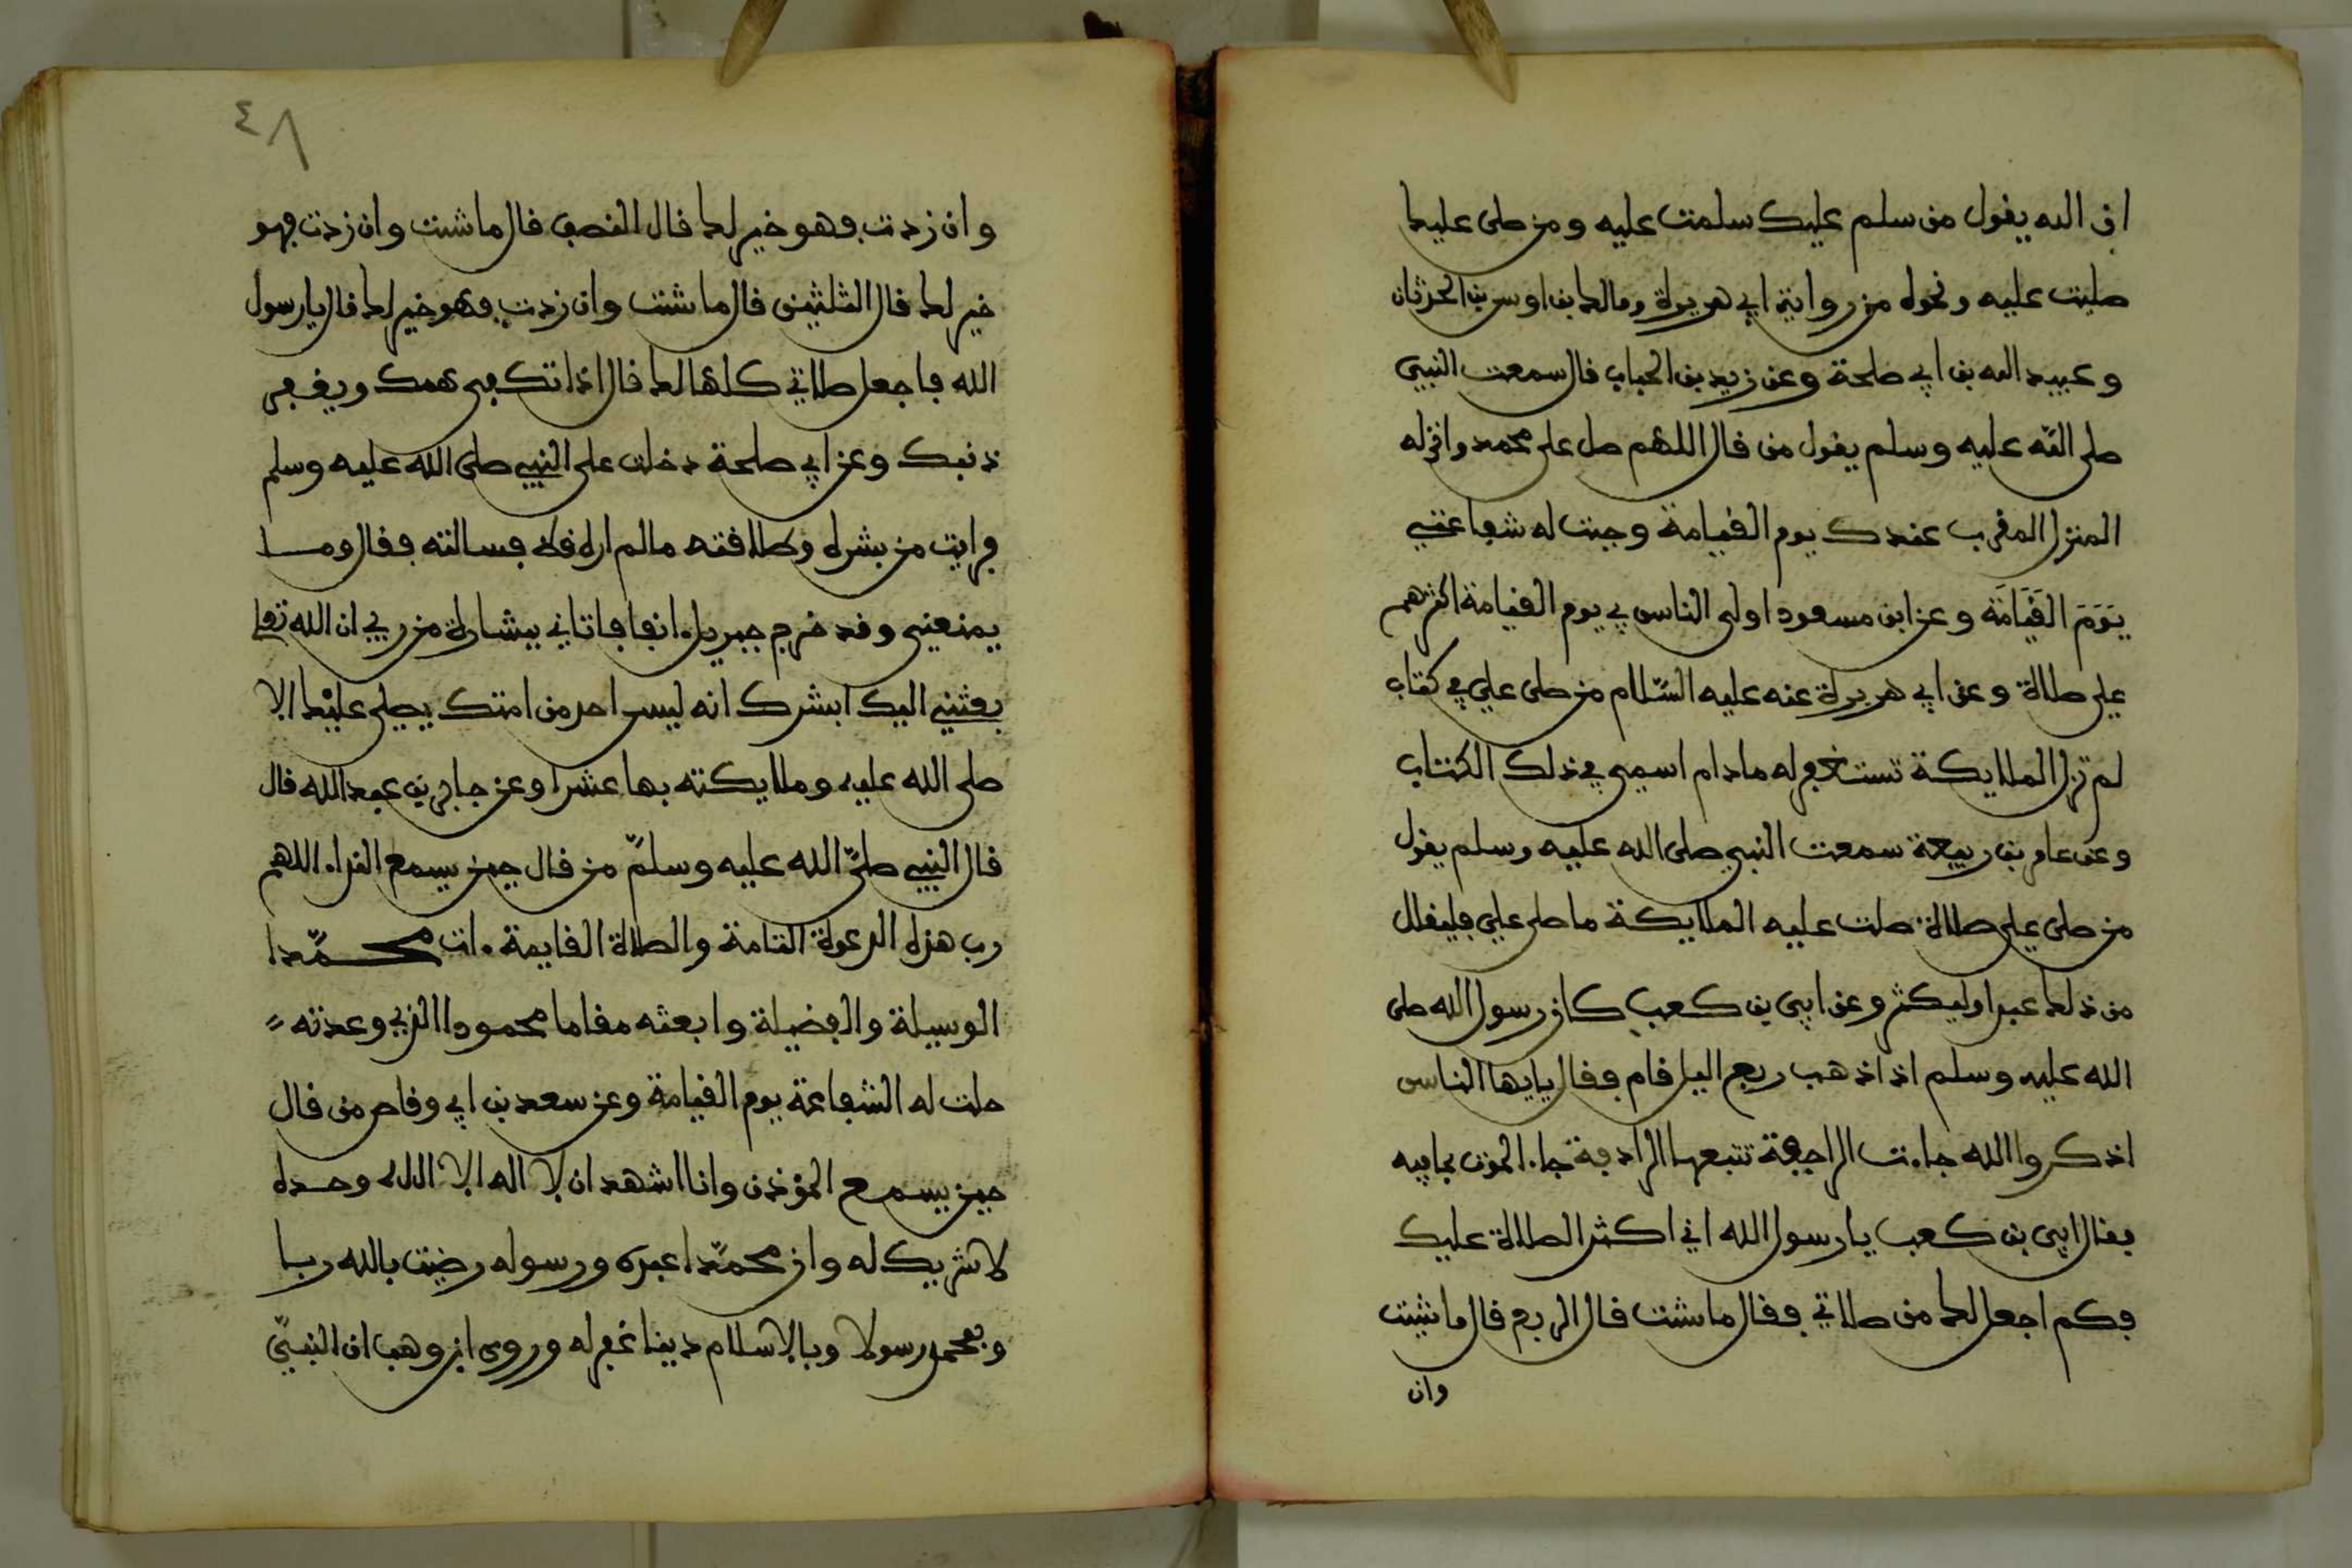 ان الله يقول من سلم عليك سلمت عليه ومن صلى عليك
صليت عليه ونحوه من رواية ابي هريرة ومالك بن اوس بن الحدثان
وعبيد الله بن ابي طلحة وعن زيد بن الحباب قال سمعت النبيي
صلى الله عليه وسلم يقول من قال اللهم صل على محمد وانزله
المنزل المقرب عندك يوم القيامة وجبت له شفاعتي
يَوَمَ القَيَامَة وعن ابن مسعود اولى الناس بي يوم القيامة اكثرهم
علي صلاة وعن ابي هريرة عنه عليه السّلام من صلى علي في كتاب
لم تزل الملايكة تستغفر له مادام اسمي في ذلك الكتاب
وعن عامر بن ربيعة سمعت النبي صلى الله عليه وسلم يقول
من صلى علي صلاة صلت عليه الملايكة ما صلى علي فليقلل
من ذلك عبد اوليكثر وعن ابي بن كعب كان رسول الله صلى
الله عليه وسلم اذا ذهب ربع اليل قام فقال يايها الناس
اذكروا الله جاءت الراجفة تتبعها الرادفة جاء الموت بما فيه
فقال ابي بن كعب يا رسول الله اني اكثر الصلاة عليك
فكم اجعل لك من صلاتي فقال ما شئت قال الربع قال ما شيت
وان
٤٨
وان زدت فهو خير لك قال النصف قال ما شئت وان زدت فهو
خير لك قال الثلثين قال ما شئت وان زدت فهو خير لك قال يا رسول
الله فاجعل صلاتي كلها لك قال اذا تكفى همك ويغفر
ذنبك وعن ابي طلحة دخلت على النبيي صلى الله عليه وسلم
فرايت من بشره وطلاقته ما لم اره قط فسالته فقال وما
يمنعني وقد خرج جبريل انفا فاتاني ببشارة من ربي ان الله تعلى
بعثني اليك ابشرك انه ليس احد من امتك يصلي عليْك الا
صلى الله عليه وملايكته بها عشرا وعن جابر بن عبد الله قال
قال النبيي صلىّ الله عليه وسلمّ من قال حين يسمع النداء اللهم
رب هذه الدعوة التامة والصلاة القايمة ءات محمّدا
الوسيلة والفضيلة وابعثه مقاما محمودا الذي وعدته
حلت له الشفاعة يوم القيامة وعن سعد بن ابي وقاص من قال
حين يسمع المؤذن وانا اشهد ان لا اله الا الله وحده
لا شريك له وان محمّدا عبده ورسوله رضيت بالله ربا
وبمحمد رسولا وبالاسلام دينا غفر له وروى ابن وهب ان النبيّ